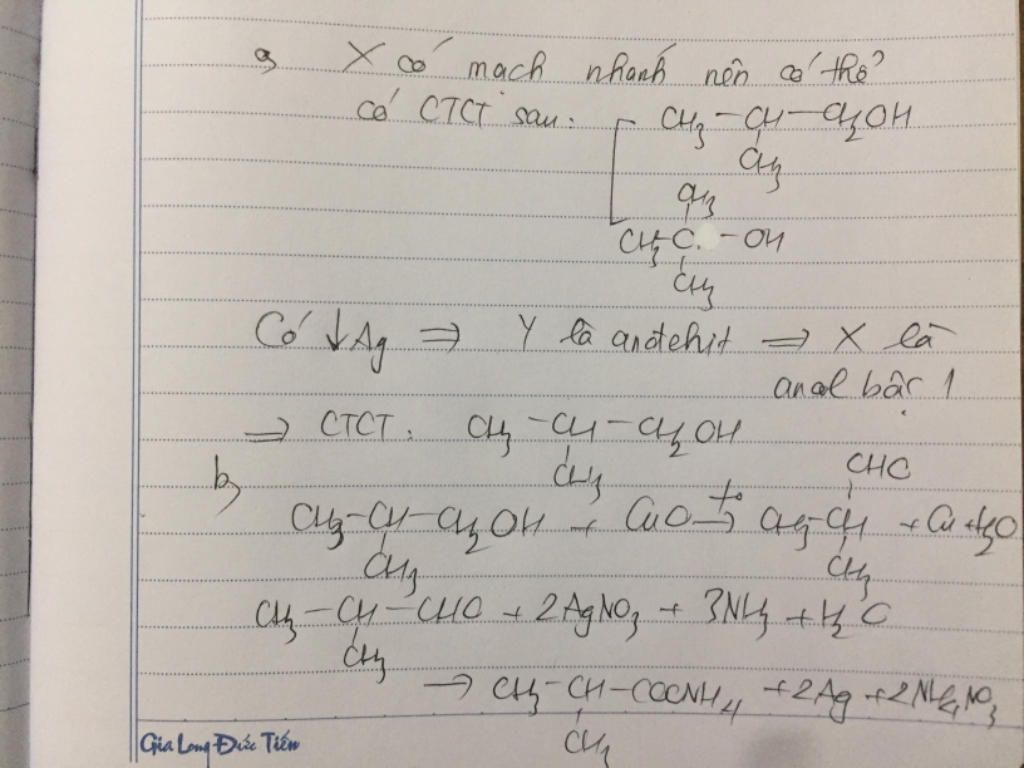 a, X có mạch nhánh nên có thể
có CTCT sau: CH3 - CH - CH2OH
CH3
CH3
CH3 - C - OH
CH3
Có ↓ Ag => Y là anđehit => X là
ancol bậc 1
=> CTCT: CH3 - CH - CH2OH
CH3
b,
CHO
CH3 - CH - CH2OH + CuO t° → CH3 - CH + Cu + H2O
CH3 CH3
CH3 - CH - CHO + 2AgNO3 + 3NH3 + H2O
CH3
→ CH3 - CH - COONH4 + 2Ag + 2NH4NO3
CH3
Gia Long Đức Tiến